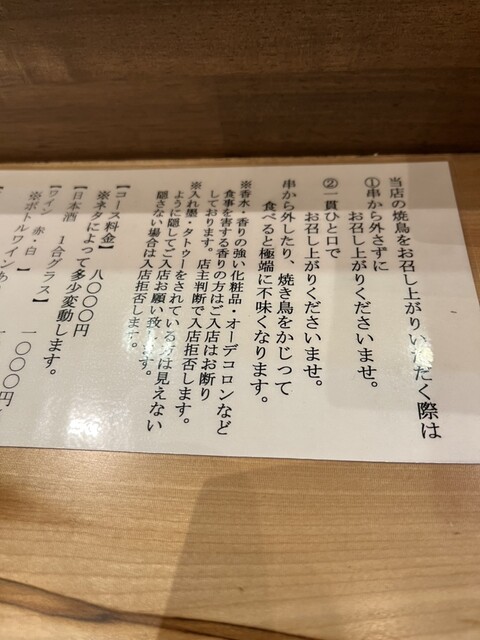 当店の焼鳥をお召し上がりいただく際は
①串から外さずに
お召し上がりくださいませ。
②一貫ひと口で
お召し上がりくださいませ。
串から外したり、焼き鳥をかじって
食べると極端に不味くなります。
※香水・香りの強い化粧品・オーデコロンなど
食事を害する香りの方はご入店はお断り
しております。店主判断で入店拒否します。
※入れ墨・タトゥーをされている方は見えない
ように隠してご入店お願い致します。
隠さない場合は入店拒否します。
【コース料金】 八〇〇〇円
※ネタによって多少変動します。
【日本酒 1合グラス】
【ワイン 赤・白】 一〇〇〇円
※ボトルワインあ